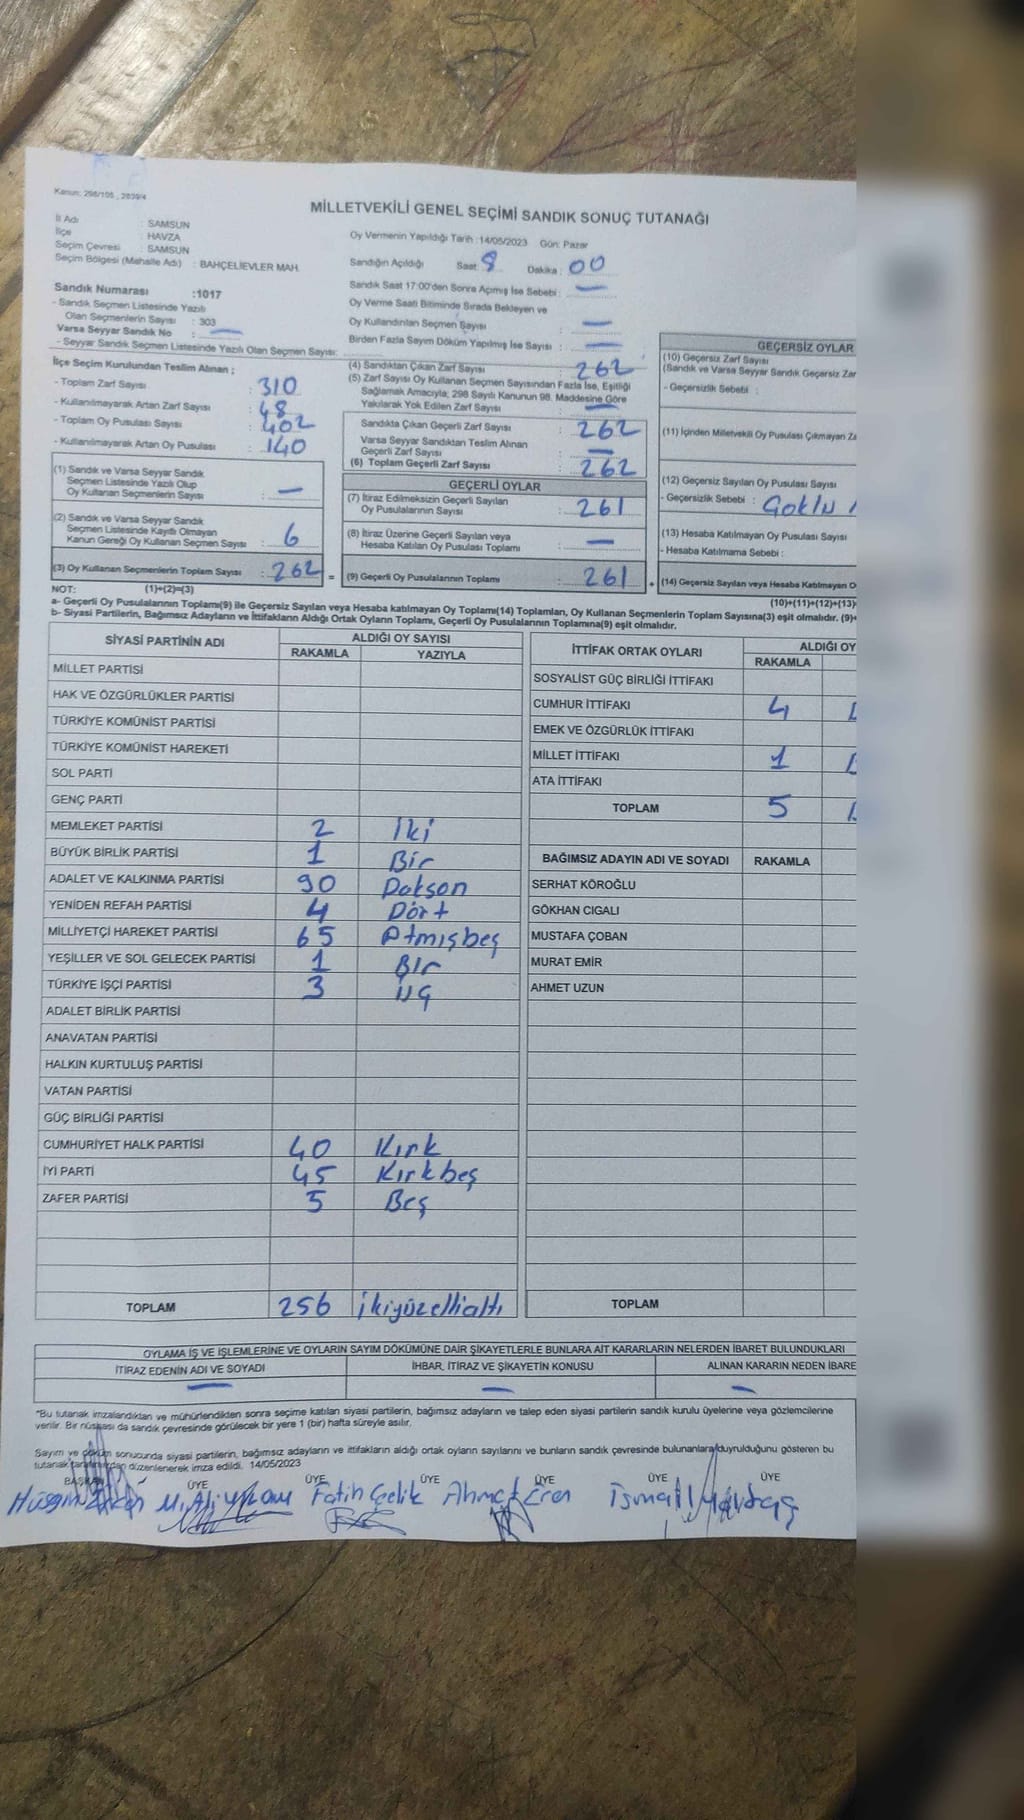 Kanun: 298/105 , 2839/4
MİLLETVEKİLİ GENEL SEÇİMİ SANDIK SONUÇ TUTANAĞI
İl Adı : SAMSUN
İlçe : HAVZA
Seçim Çevresi : SAMSUN
Seçim Bölgesi (Mahalle Adı) : BAHÇELİEVLER MAH.
Sandık Numarası :1017
- Sandık Seçmen Listesinde Yazılı
Olan Seçmenlerin Sayısı : 303
Varsa Seyyar Sandık No : —
- Seyyar Sandık Seçmen Listesinde Yazılı Olan Seçmen Sayısı:
Oy Vermenin Yapıldığı Tarih :14/05/2023 Gün: Pazar
Sandığın Açıldığı Saat: 8 Dakika : 00
Sandık Saat 17:00'den Sonra Açımış İse Sebebi : —
Oy Verme Saati Bitiminde Sırada Bekleyen ve
Oy Kullandırılan Seçmen Sayısı : —
Birden Fazla Sayım Döküm Yapılmış İse Sayısı : —
İlçe Seçim Kurulundan Teslim Alınan ;
- Toplam Zarf Sayısı : 310
- Kullanılmayarak Artan Zarf Sayısı : 48
- Toplam Oy Pusulası Sayısı : 402
- Kullanılmayarak Artan Oy Pusulası : 140
(1) Sandık ve Varsa Seyyar Sandık
Seçmen Listesinde Yazılı Olup
Oy Kullanan Seçmenlerin Sayısı : —
(2) Sandık ve Varsa Seyyar Sandık
Seçmen Listesinde Kayıtlı Olmayan
Kanun Gereği Oy Kullanan Seçmen Sayısı : 6
(3) Oy Kullanan Seçmenlerin Toplam Sayısı : 262 =
(4) Sandıktan Çıkan Zarf Sayısı : 262
(5) Zarf Sayısı Oy Kullanan Seçmen Sayısından Fazla İse, Eşitliği
Sağlamak Amacıyla; 298 Sayılı Kanunun 98. Maddesine Göre
Yakılarak Yok Edilen Zarf Sayısı : —
Sandıkta Çıkan Geçerli Zarf Sayısı : 262
Varsa Seyyar Sandıktan Teslim Alınan
Geçerli Zarf Sayısı : —
(6) Toplam Geçerli Zarf Sayısı : 262
GEÇERLİ OYLAR
(7) İtiraz Edilmeksizin Geçerli Sayılan
Oy Pusulalarının Sayısı : 261
(8) İtiraz Üzerine Geçerli Sayılan veya
Hesaba Katılan Oy Pusulası Toplamı : —
(9) Geçerli Oy Pusulalarının Toplamı : 261 +
GEÇERSİZ OYLAR
(10) Geçersiz Zarf Sayısı
(Sandık ve Varsa Seyyar Sandık Geçersiz Zar
- Geçersizlik Sebebi :
(11) İçinden Milletvekili Oy Pusulası Çıkmayan Za
(12) Geçersiz Sayılan Oy Pusulası Sayısı
- Geçersizlik Sebebi :
(13) Hesaba Katılmayan Oy Pusulası Sayısı
- Hesaba Katılmama Sebebi :
(14) Geçersiz Sayılan veya Hesaba Katılmayan O
NOT: (1)+(2)=(3)
(10)+(11)+(12)+(13)
a- Geçerli Oy Pusulalarının Toplamı(9) ile Geçersiz Sayılan veya Hesaba katılmayan Oy Toplamı(14) Toplamları, Oy Kullanan Seçmenlerin Toplam Sayısına(3) eşit olmalıdır. (9)+
b- Siyasi Partilerin, Bağımsız Adayların ve İttifakların Aldığı Ortak Oyların Toplamı, Geçerli Oy Pusulalarının Toplamına(9) eşit olmalıdır.
SİYASİ PARTİNİN ADI ALDIĞI OY SAYISI
RAKAMLA YAZIYLA
MİLLET PARTİSİ
HAK VE ÖZGÜRLÜKLER PARTİSİ
TÜRKİYE KOMÜNİST PARTİSİ
TÜRKİYE KOMÜNİST HAREKETİ
SOL PARTİ
GENÇ PARTİ
MEMLEKET PARTİSİ 2 İki
BÜYÜK BİRLİK PARTİSİ 1 Bir
ADALET VE KALKINMA PARTİSİ 90 Doksan
YENİDEN REFAH PARTİSİ 4 Dört
MİLLİYETÇİ HAREKET PARTİSİ 65 Atmışbeş
YEŞİLLER VE SOL GELECEK PARTİSİ 1 Bir
TÜRKİYE İŞÇİ PARTİSİ 3 üç
ADALET BİRLİK PARTİSİ
ANAVATAN PARTİSİ
HALKIN KURTULUŞ PARTİSİ
VATAN PARTİSİ
GÜÇ BİRLİĞİ PARTİSİ
CUMHURİYET HALK PARTİSİ 40 Kırk
İYİ PARTİ 45 Kırkbeş
ZAFER PARTİSİ 5 Beş
TOPLAM 256 ikiyüzellialtı
İTTİFAK ORTAK OYLARI ALDIĞI OY
RAKAMLA
SOSYALİST GÜÇ BİRLİĞİ İTTİFAKI
CUMHUR İTTİFAKI 4
EMEK VE ÖZGÜRLÜK İTTİFAKI
MİLLET İTTİFAKI 1
ATA İTTİFAKI
TOPLAM 5
BAĞIMSIZ ADAYIN ADI VE SOYADI RAKAMLA
SERHAT KÖROĞLU
GÖKHAN CIGALI
MUSTAFA ÇOBAN
MURAT EMİR
AHMET UZUN
TOPLAM
OYLAMA İŞ VE İŞLEMLERİNE VE OYLARIN SAYIM DÖKÜMÜNE DAİR ŞİKAYETLERLE BUNLARA AİT KARARLARIN NELERDEN İBARET BULUNDUKLARI
İTİRAZ EDENİN ADI VE SOYADI İHBAR, İTİRAZ VE ŞİKAYETİN KONUSU ALINAN KARARIN NEDEN İBARE
— — —
"Bu tutanak imzalandıktan ve mühürlendikten sonra seçime katılan siyasi partilerin, bağımsız adayların ve talep eden siyasi partilerin sandık kurulu üyelerine veya gözlemcilerine
verilir. Bir nüshası da sandık çevresinde görülecek bir yere 1 (bir) hafta süreyle asılır.
Sayım ve döküm sonucunda siyasi partilerin, bağımsız adayların ve ittifakların aldığı ortak oyların sayılarını ve bunların sandık çevresinde bulunanlara duyrulduğunu gösteren bu
tutanak tarafımızdan düzenlenerek imza edildi. 14/05/2023
BAŞKAN ÜYE ÜYE ÜYE ÜYE ÜYE
Fatih Çelik Ahmet Eren İsmail